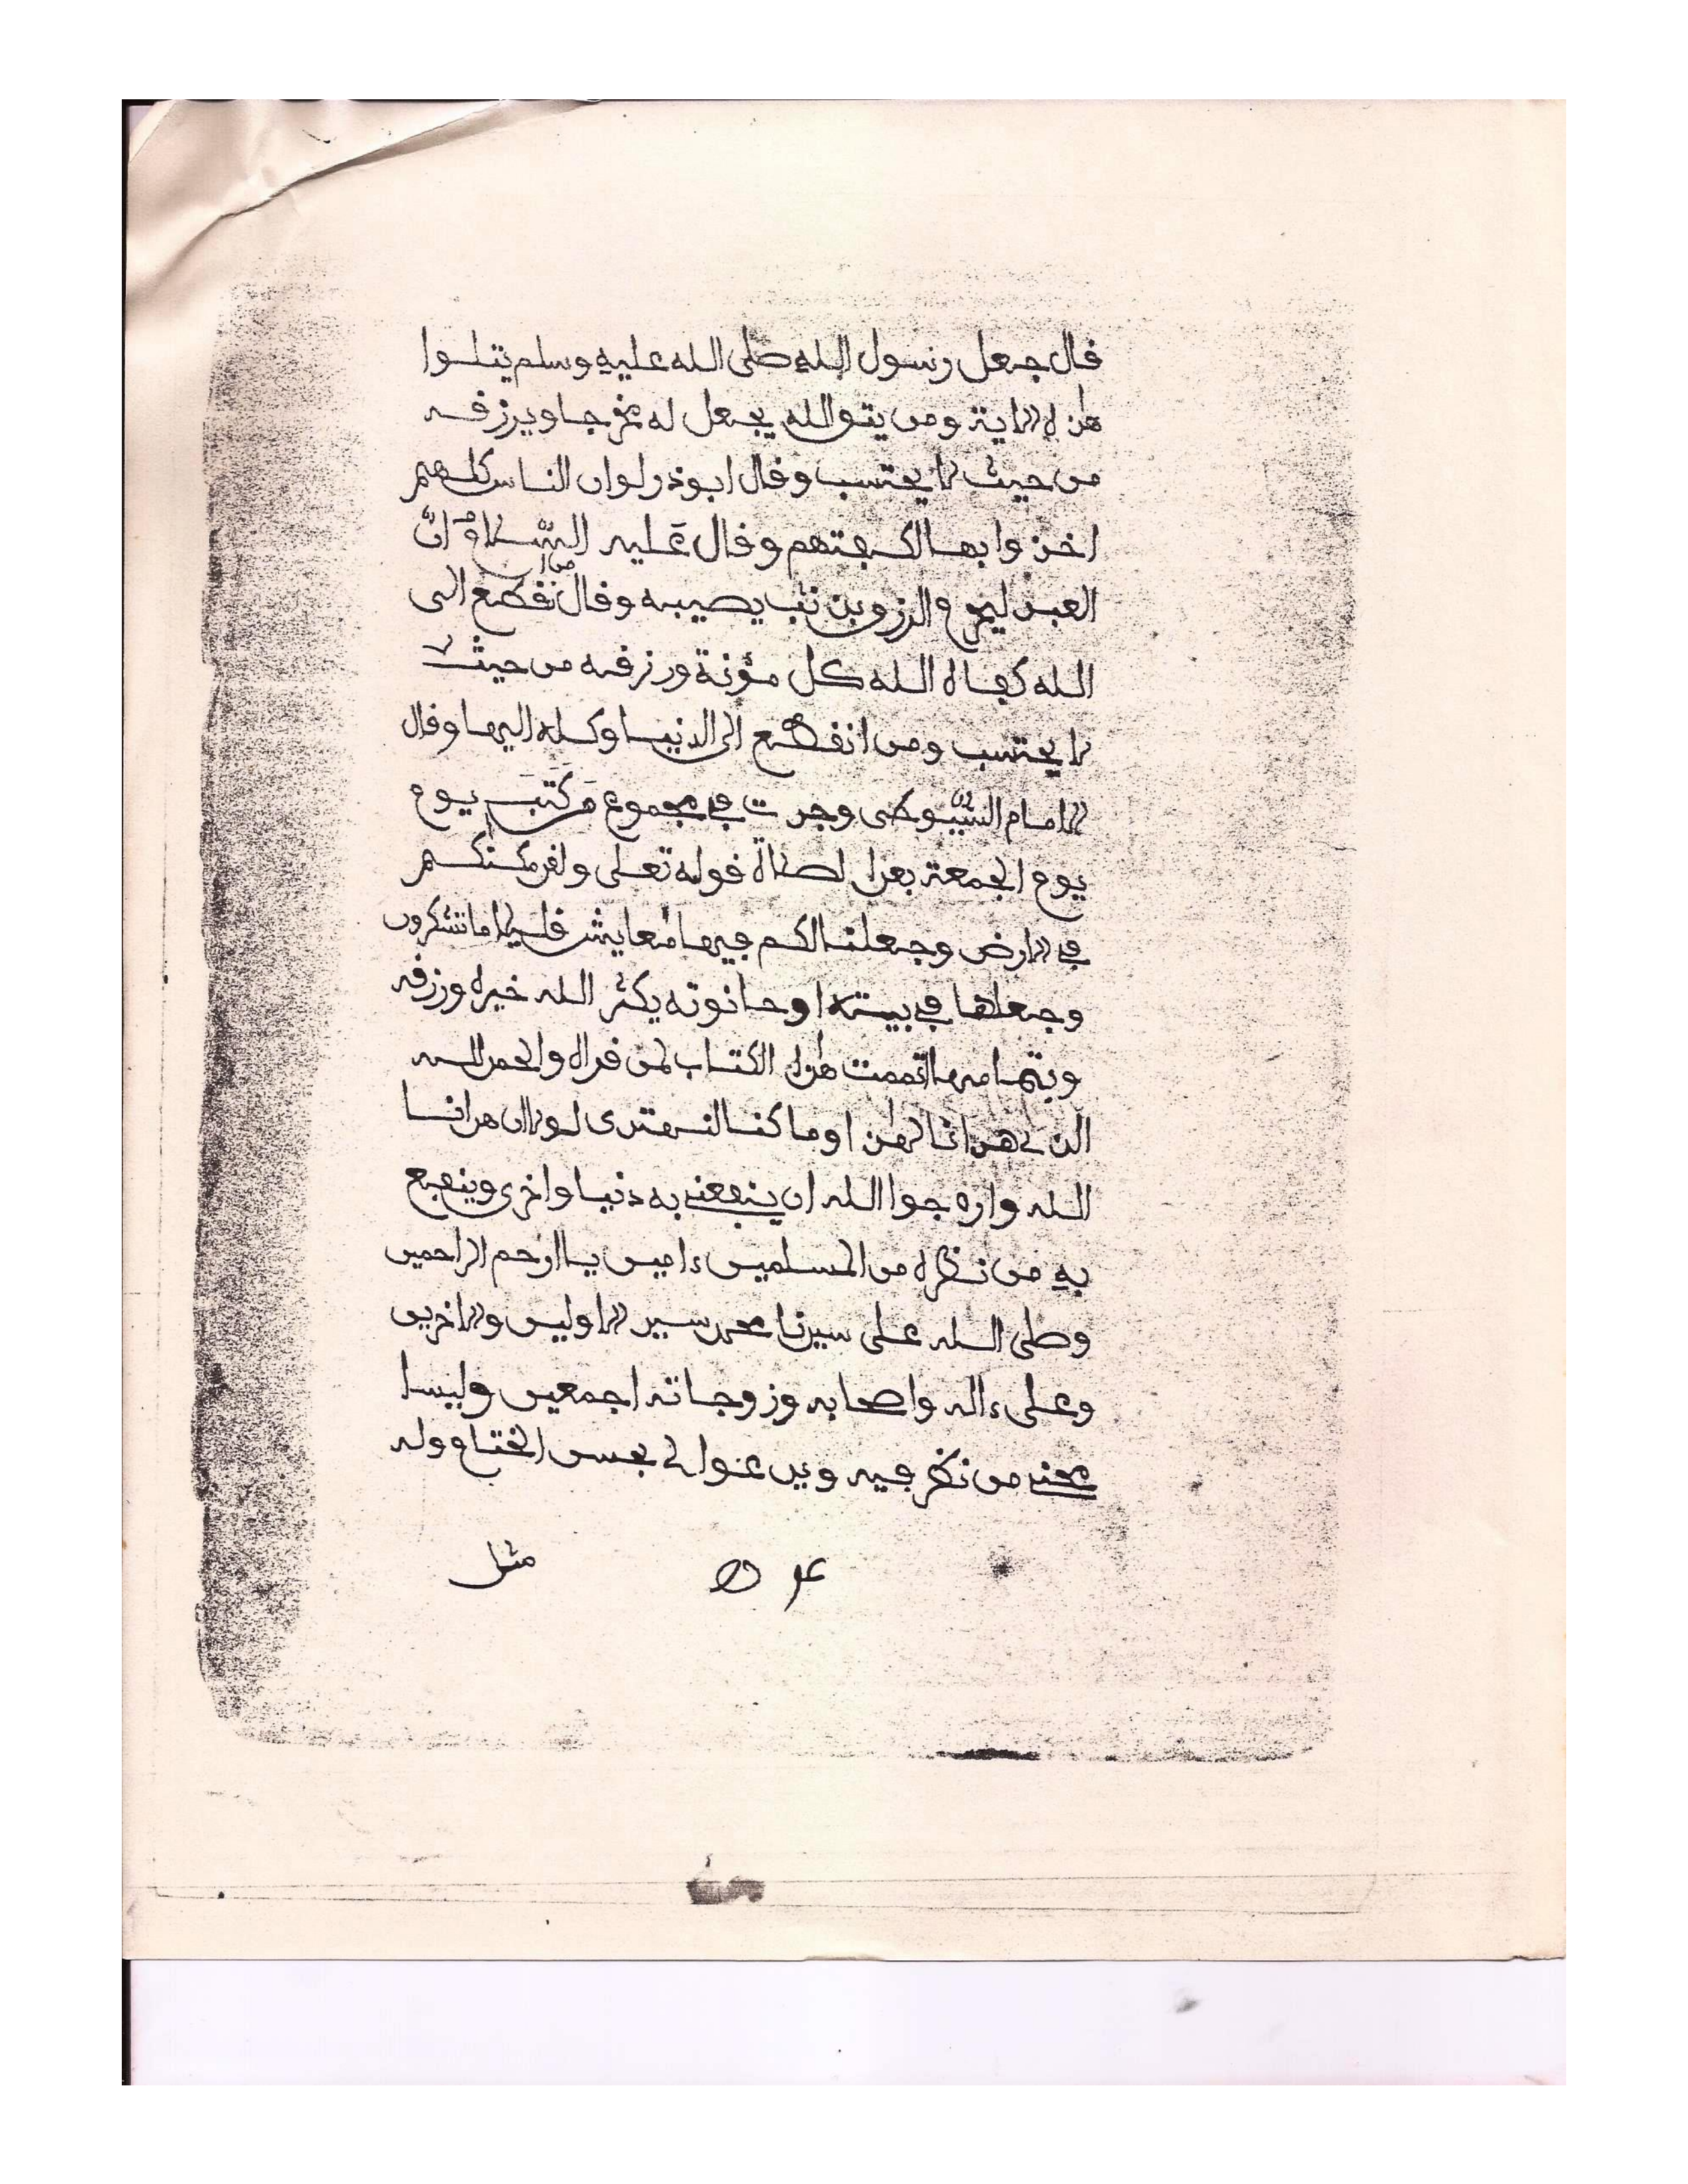 قال جعل رسول الله صلى الله عليه وسلم يتلوا
هذه الاية ومن يتق الله يجعل له مخرجا ويرزقه
من حيث لا يحتسب وقال ابوذر لو ان الناس كلهم
اخذوا بها لكفتهم وقال عليه السّلام انّ
العبد ليحرم الرزق بذنب يصيبه وقال من انقطع الى
الله كفاه الله كل مؤنة ورزقه من حيث
لا يحتسب ومن انقطع الى الدنيا وكله اليها وقال
الامام السّيوطى وجدت في مجموع مَن كَتَبَ يوم
يوم الجمعة بعد الصلاة قوله تعلى ولقد مكنكم
في الارض وجعلنا لكم فيها معايش قليلا ما تشكرون
وجعلها في بيته او حانوته يكثر الله خيره ورزقه
وبتمامها تممت هذا الكتاب لمن قراه والحمد لله
الذي هدانا لهذا وما كنا لنهتدى لولا ان هدانا
الله وارجوا الله ان ينفعني به دنيا واخرى وينفع
به من نظره من المسلمين ءامين يا ارحم الراحمين
وصلى الله على سيدنا محمد سيد الاولين والاخرين
وعلى ءاله واصحابه وزوجاته اجمعين
من نظر فيه ويدعوا لي بحسن الختام وله
مثل